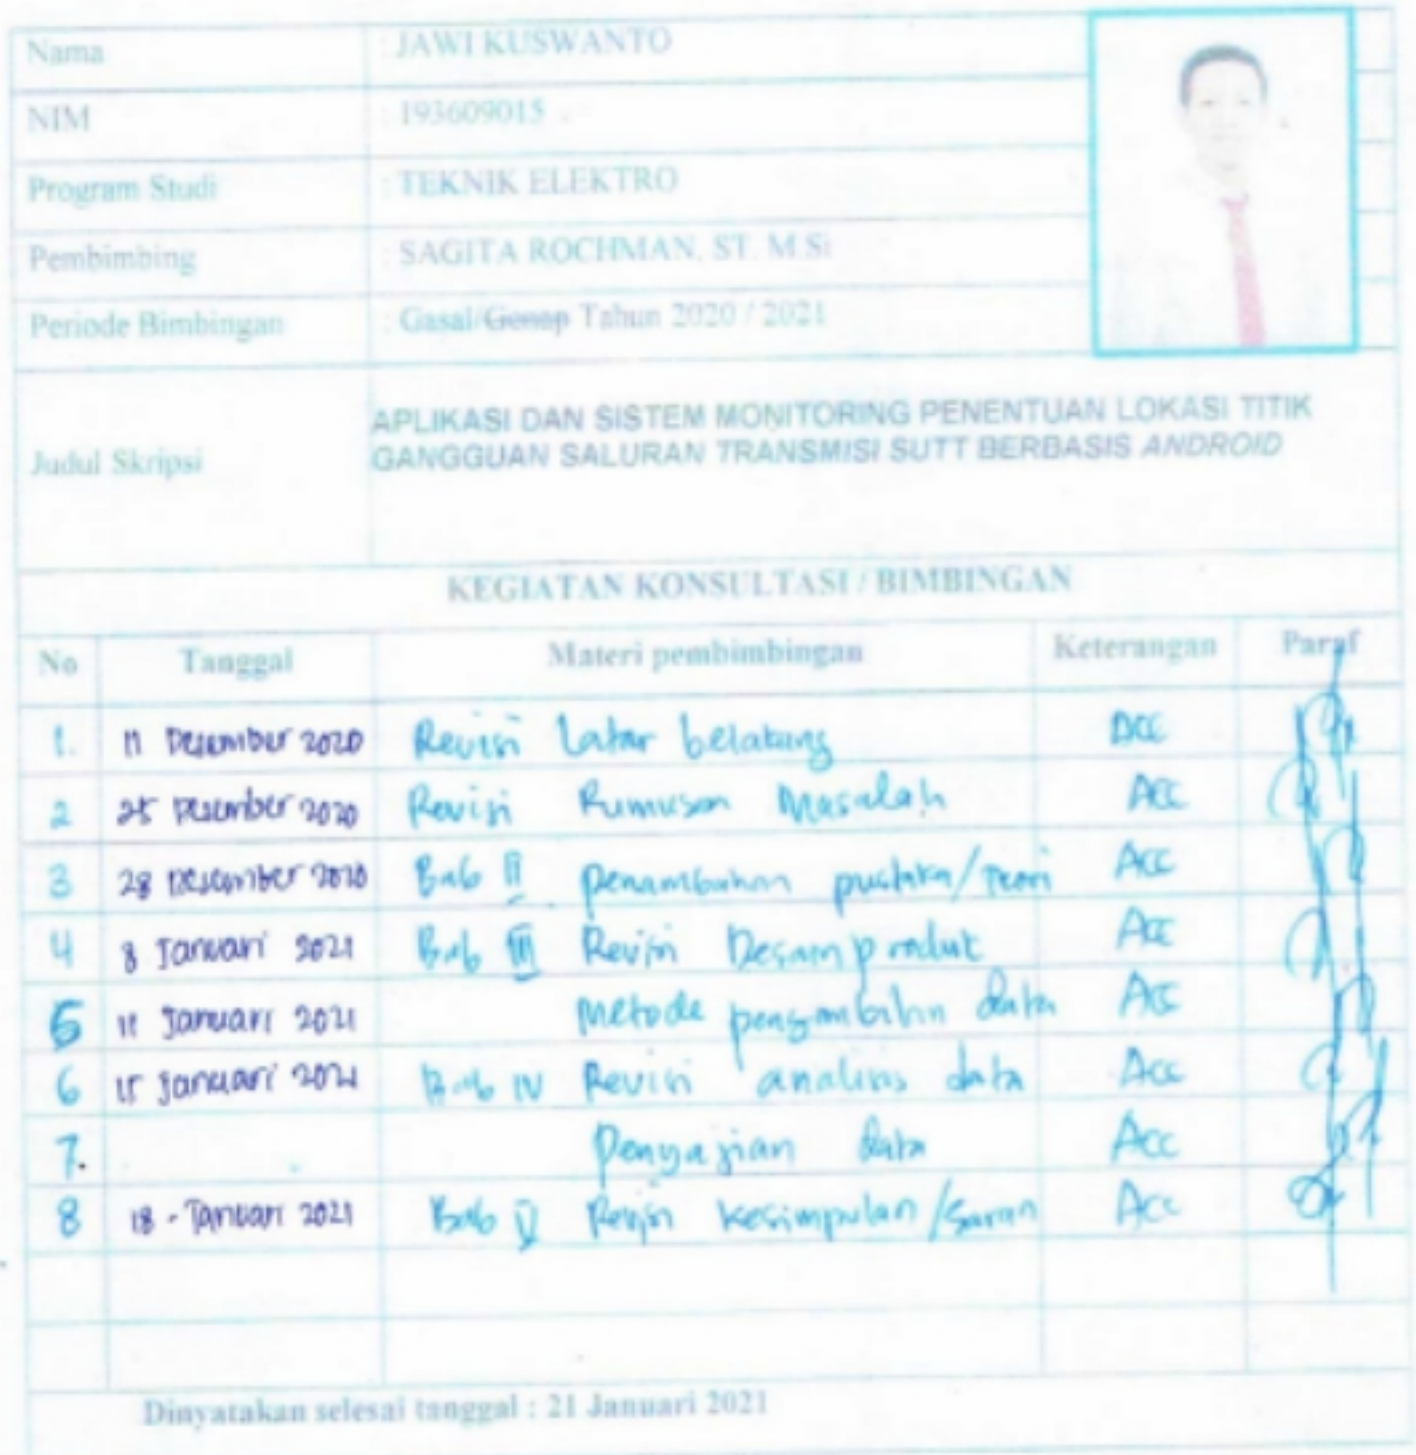 Nama : JAWI KUSWANTO
NIM : 193609015
Program Studi : TEKNIK ELEKTRO
Pembimbing : SAGITA ROCHMAN, ST. M.Si
Periode Bimbingan : Gasal/Genap Tahun 2020 / 2021
Judul Skripsi APLIKASI DAN SISTEM MONITORING PENENTUAN LOKASI TITIK
GANGGUAN SALURAN TRANSMISI SUTT BERBASIS ANDROID
KEGIATAN KONSULTASI / BIMBINGAN
No Tanggal Materi pembimbingan Keterangan Paraf
1. 11 Desember 2020 Revisi Latar belakang ACC
2 25 Desember 2020 Revisi Rumusan Masalah ACC
3 28 Desember 2020 Bab II penambahan pustaka/Teori ACC
4 8 Januari 2021 Bab III Revisi Desain produk ACC
5 11 Januari 2021 Metode pengambilan data ACC
6 15 Januari 2021 Bab IV Revisi analisis data Acc
7. Penyajian data Acc
8 18 - Januari 2021 Bab V Revisi kesimpulan/Saran Acc
Dinyatakan selesai tanggal : 21 Januari 2021